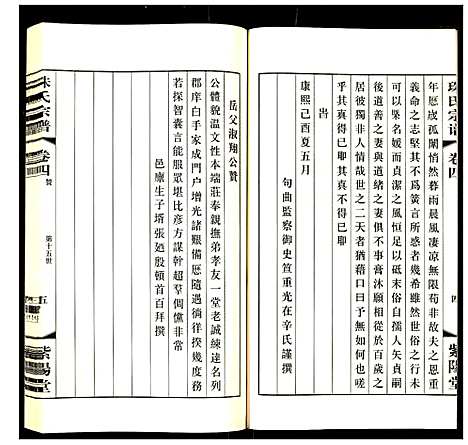 年愿歲孤闈悄然暮雨晨風凄凉無限苟非故夫之
義命之志堅其不為簧言所惑者幾希雖然世俗之行未
可以果名媛而貞潔之風恒足以砥末俗自孺人矢貞嗣
後道善之妻與道續之妻俱不事膏沐願相從於百歲之
居彼獨非人情哉世之二天者猶藉口於無如何也嗟
乎其真不得已即
乎其真得已即
旹
康熙己酉夏五月
句曲監察御史笪重光在辛氏謹撰
岳父淑翔公贊
公體貌溫文性本端莊奉親撫弟孝友一堂老誠練達名列
郡庠白手家成門户增光諸艱備愿隨遇徜徉揆幾度務
若探智囊言能服眾堪比彥方謀幹超羣倜儻非常
邑廩生子壻張廼殷頓首百拜撰
珠氏宗譜
卷四
四
紫陽堂
珠氏宗譜
卷四
贊
第十五世
五
紫陽堂